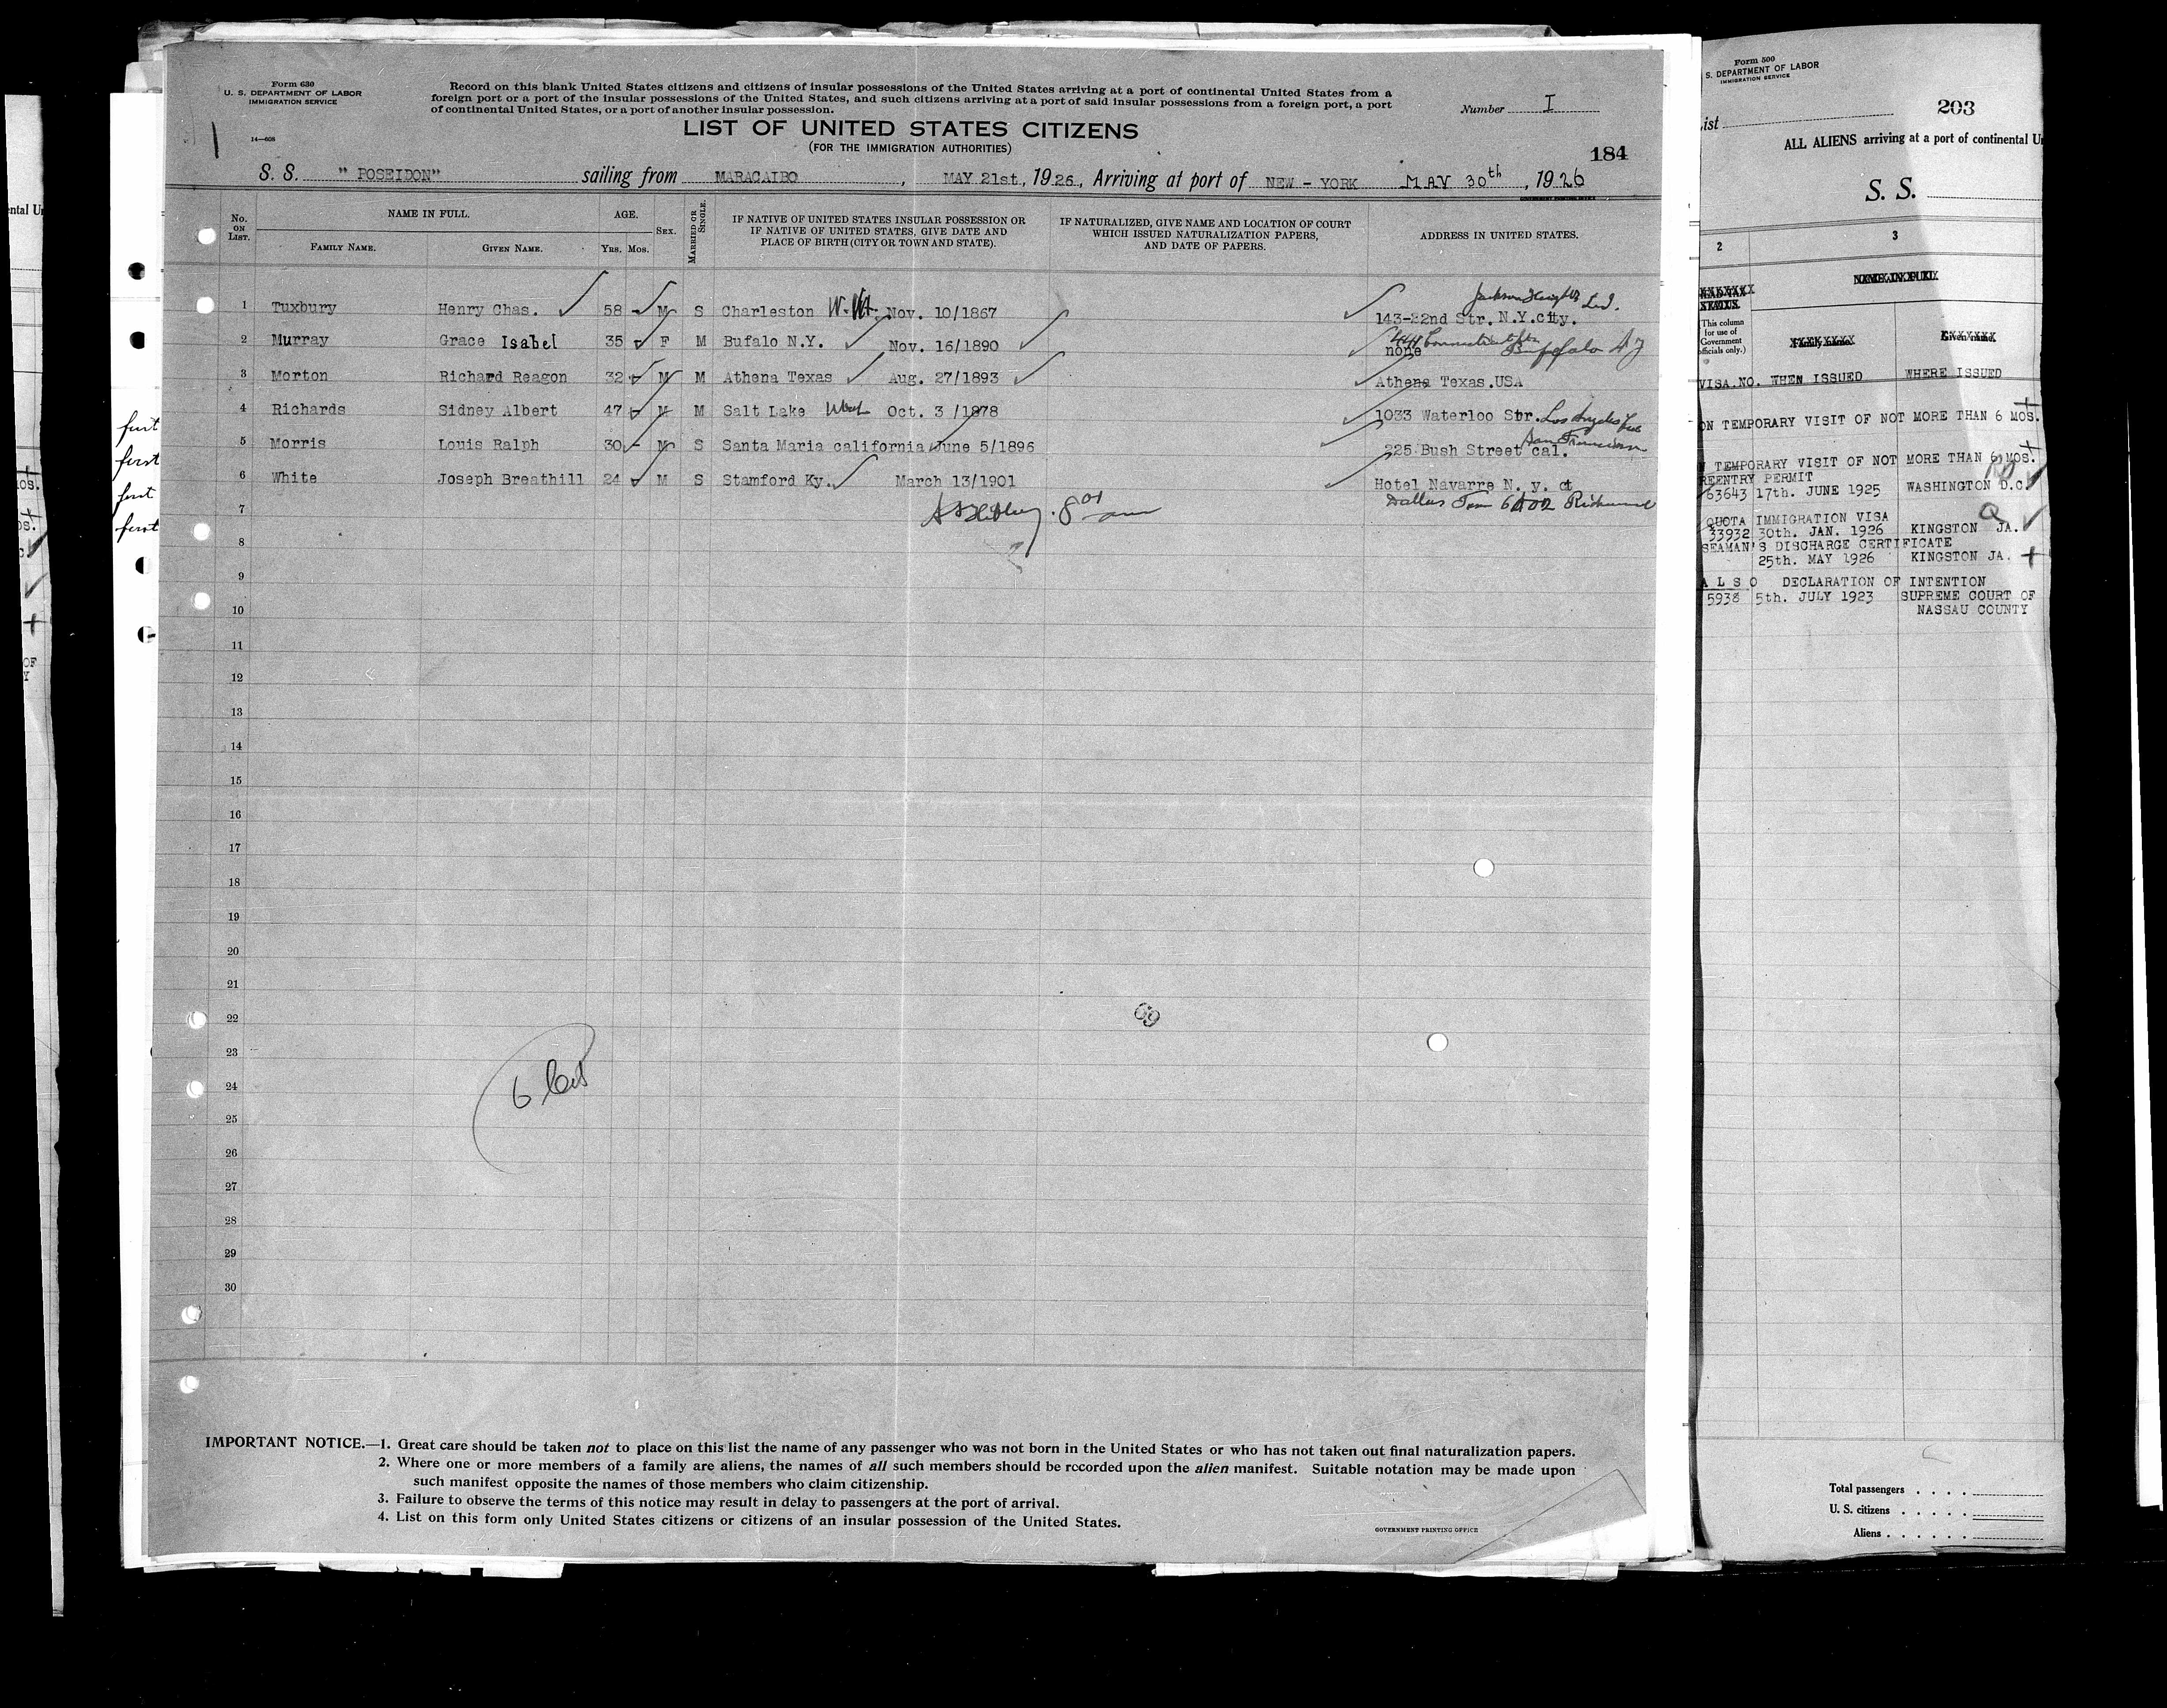 Form 630
U. S. DEPARTMENT OF LABOR
IMMIGRATION SERVICE
14—608
Record on this blank United States citizens and citizens of insular possessions of the United States arriving at a port of continental United States from a
foreign port or a port of the insular possessions of the United States, and such citizens arriving at a port of said insular possessions from a foreign port, a port
of continental United States, or a port of another insular possession.
Number I
LIST OF UNITED STATES CITIZENS
(FOR THE IMMIGRATION AUTHORITIES)
184
S. S. " POSEIDON" sailing from MARACAIBO, MAY 21st, 1926, Arriving at port of NEW - YORK MAY 30th, 1926
GOVERNMENT PRINTING OFFICE
No. ON LIST. NAME IN FULL. FAMILY NAME. GIVEN NAME. AGE. Yrs. Mos. SEX. MARRIED OR SINGLE.
IF NATIVE OF UNITED STATES INSULAR POSSESSION OR
IF NATIVE OF UNITED STATES, GIVE DATE AND
PLACE OF BIRTH (CITY OR TOWN AND STATE).
IF NATURALIZED, GIVE NAME AND LOCATION OF COURT
WHICH ISSUED NATURALIZATION PAPERS,
AND DATE OF PAPERS.
ADDRESS IN UNITED STATES.
Jackson Heights L.I.
1 Tuxbury Henry Chas. 58 - M S Charleston Nov. 10/1867 143-22nd Str. N.Y.city.
2 Murray Grace Isabel 35 F M Bufalo N.Y. Nov. 16/1890 none Buffalo NY
3 Morton Richard Reagon 32 M M Athena Texas Aug. 27/1893 Athena Texas.USA
4 Richards Sidney Albert 47 M M Salt Lake Oct. 3 /1878 1033 Waterloo Str. Los Angeles
5 Morris Louis Ralph 30 - M S Santa Maria california June 5/1896 225 Bush Street cal. San Francisco
6 White Joseph Breathill 24 M S Stamford Ky. March 13/1901 Hotel Navarre N. y. ct
Dallas
7
8
9
10
11
12
13
14
15
16
17
18
19
20
21
22
23
24
25
26
27
28
29
30
69
IMPORTANT NOTICE.—1. Great care should be taken not to place on this list the name of any passenger who was not born in the United States or who has not taken out final naturalization papers.
2. Where one or more members of a family are aliens, the names of all such members should be recorded upon the alien manifest. Suitable notation may be made upon
such manifest opposite the names of those members who claim citizenship.
3. Failure to observe the terms of this notice may result in delay to passengers at the port of arrival.
4. List on this form only United States citizens or citizens of an insular possession of the United States.
GOVERNMENT PRINTING OFFICE
first
first
first
first
Form 500
S. DEPARTMENT OF LABOR
IMMIGRATION SERVICE
203
ist
ALL ALIENS arriving at a port of continental U
S. S.
2 3
(This column
for use of
Government
officials only.)
Family name. Given name.
VISA.NO. WHEN ISSUED WHERE ISSUED
ON TEMPORARY VISIT OF NOT MORE THAN 6 MOS.
TEMPORARY VISIT OF NOT MORE THAN 6 MOS.
REENTRY PERMIT
63643 17th. JUNE 1925 WASHINGTON D.C.
QUOTA IMMIGRATION VISA
33932 30th. JAN. 1926 KINGSTON JA.
SEAMAN'S DISCHARGE CERTIFICATE
25th. MAY 1926 KINGSTON JA.
A L S O DECLARATION OF INTENTION
5938 5th. JULY 1923 SUPREME COURT OF
NASSAU COUNTY
Total passengers
U. S. citizens
Aliens